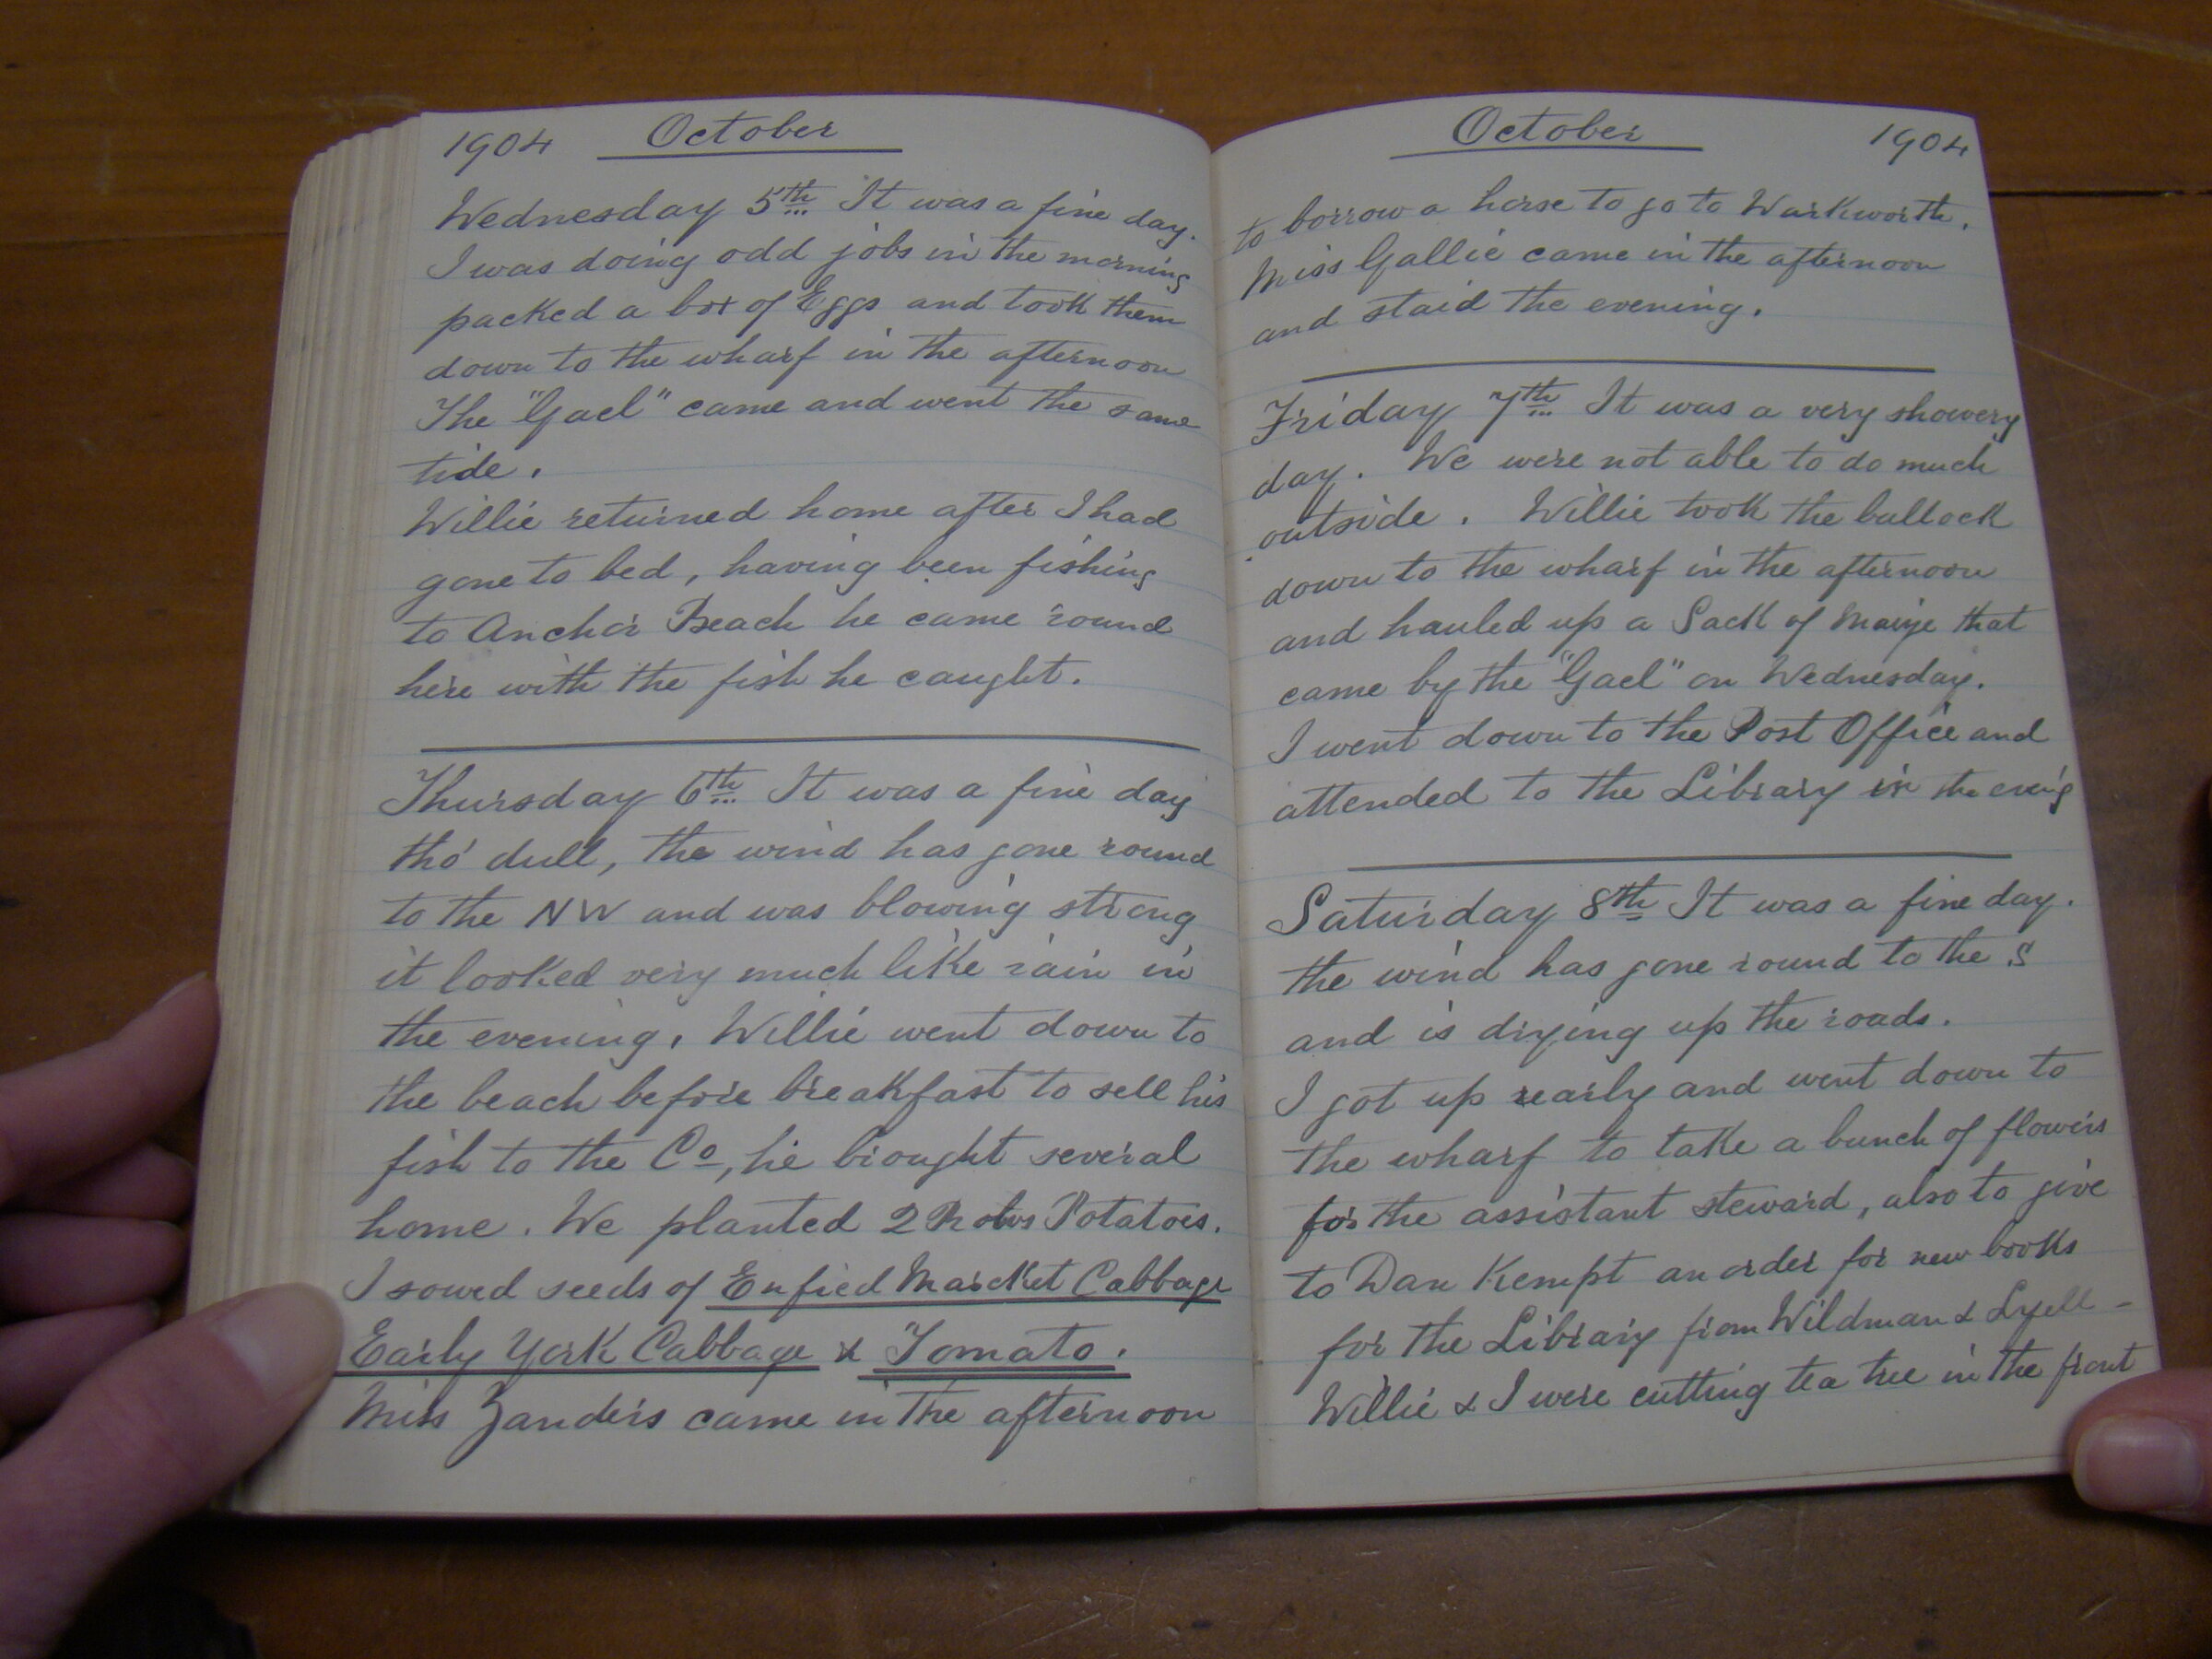 1904 October
Wednesday 5th It was a fine day.
I was doing odd jobs in the morning
packed a box of Eggs and took them
down to the wharf in the afternoon
The "Gael" came and went the same
tide.
Willie returned home after I had
gone to bed, having been fishing
to Anchor Beach he came round
here with the fish he caught.
Thursday 6th It was a fine day
tho' dull, the wind has gone round
to the NW and was blowing strong
it looked very much like rain in
the evening. Willie went down to
the beach before breakfast to sell his
fish to the Co, he brought several
home. We planted 2 Rows Potatoes.
I sowed seeds of Enfied Market Cabbage
Early York Cabbage & Tomato.
Miss Zanders came in the afternoon
October 1904
to borrow a horse to go to Warkworth.
Miss Gallie came in the afternoon
and staid the evening.
Friday 7th It was a very showery
day. We were not able to do much
outside. Willie took the bullock
down to the wharf in the afternoon
and hauled up a Sack of Maize that
came by the "Gael" on Wednesday.
I went down to the Post Office and
attended to the Library in the eveng
Saturday 8th It was a fine day.
the wind has gone round to the S
and is drying up the roads.
I got up early and went down to
the wharf to take a bunch of flowers
for the assistant steward, also to give
to Dan Kempt an order for new books
for the Library from Wildman & Lyell -
Willie & I were cutting tea tree in the front